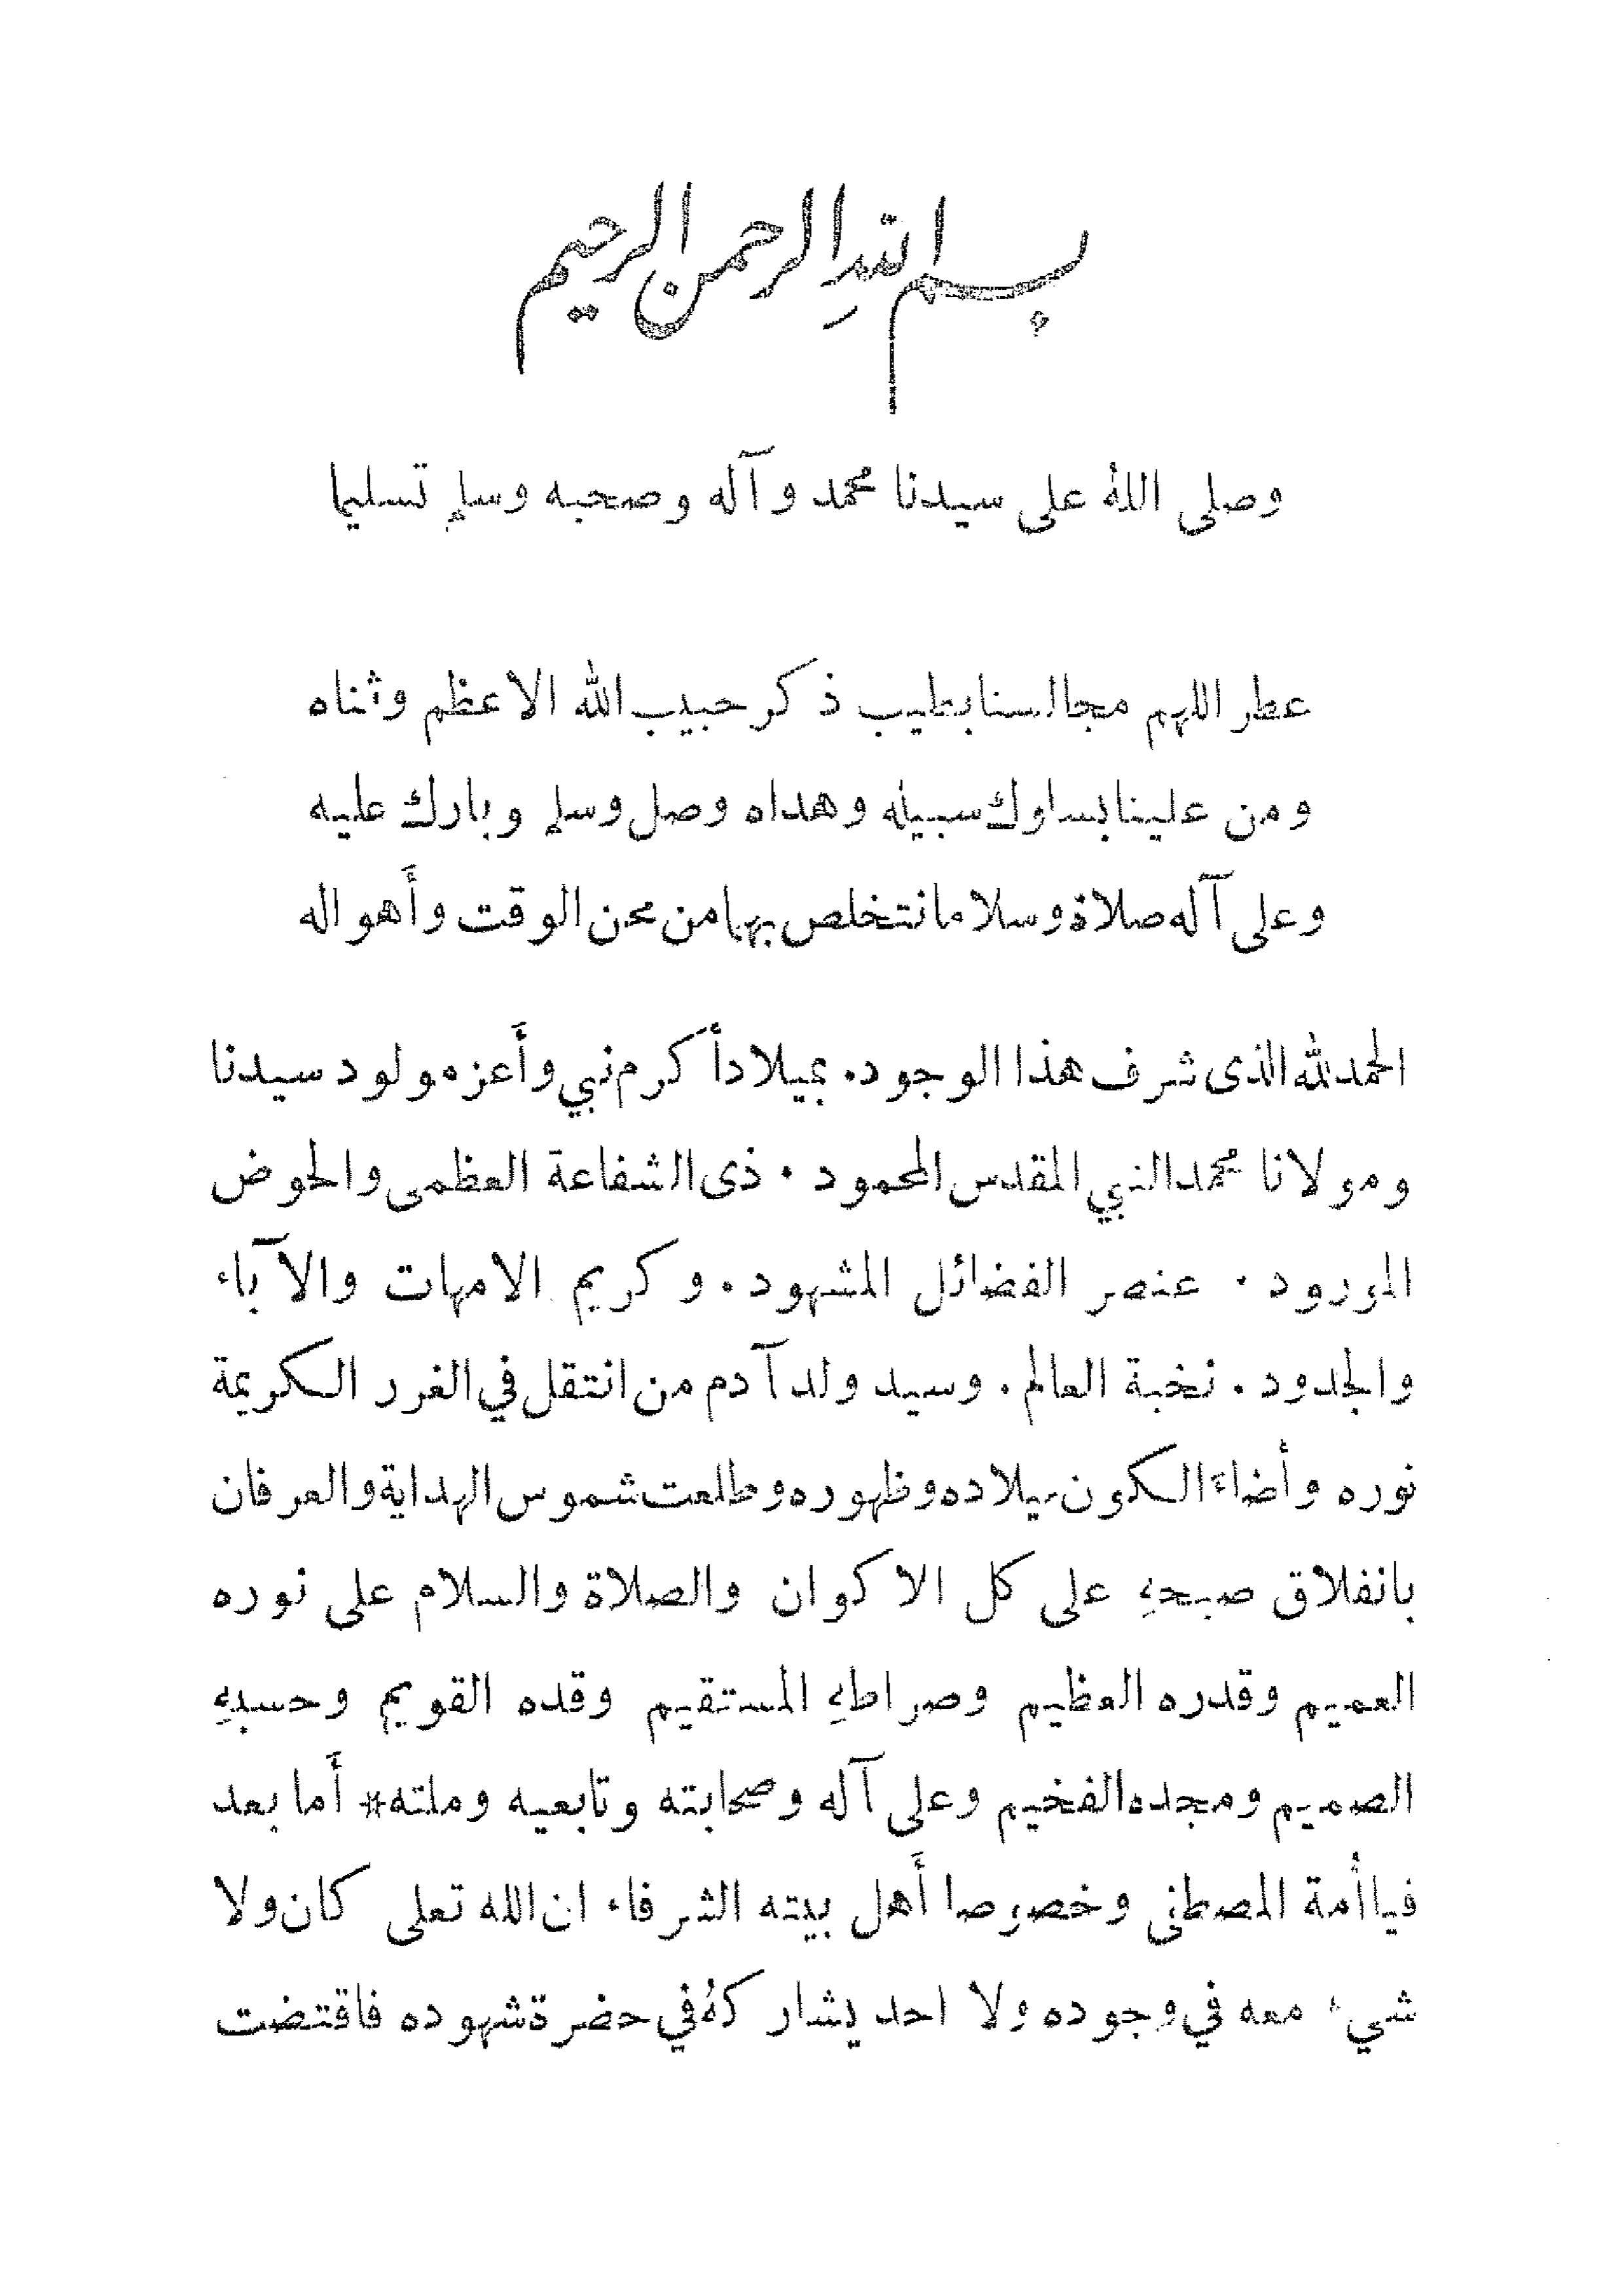 بسم الله الرحمن الرحيم
وصلى الله على سيدنا محمد وآله وصحبه وسلم تسليما
عطر اللهم مجالسنا بطيب ذكر حبيب الله الاعظم وثناه
ومن علينا بسلوك سبيله وهداه وصل وسلم وبارك عليه
وعلى آله صلاة وسلاما نتخلص بهما من محن الوقت وأهواله
الحمد لله الذى شرف هذا الوجود . بميلاد أكرم نبي وأعز مولود سيدنا
ومولانا محمد النبي المقدس المحمود . ذى الشفاعة العظمى والحوض
المورود . عنصر الفضائل المشهود . وكريم الامهات والآباء
والجدود . نخبة العالم . وسيد ولد آدم من انتقل في الغرر الكريمة
نوره وأضاءَ الكون بميلاده وظهوره وطلعت شموس الهداية والعرفان
بانفلاق صبحهِ على كل الاكوان والصلاة والسلام على نوره
العميم وقدره العظيم وصراطهِ المستقيم وقده القويم وحسبهِ
الصميم ومجده الفخيم وعلى آله وصحابته وتابعيه وملته # أَما بعد
فيا أمة المصطفى وخصوصا أَهل بيته الشرفاء ان الله تعلى كان ولا
شيء معه في وجوده ولا احد يشاركهُ في حضرة شهوده فاقتضت